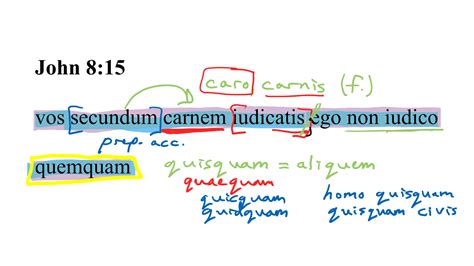 John 8:15
caro carnis (f.)
vos secundum carnem iudicatis ego non iudico
prep. acc.
quemquam quisquam = aliquem
quaequam
quicquam homo quisquam
quidquam quisquam civis